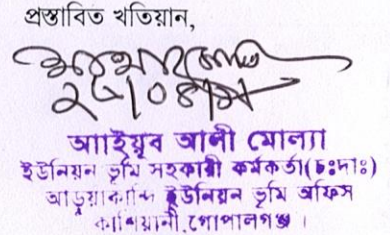 প্রস্তাবিত খতিয়ান,
আইয়ুব আলী মোল্যা
ইউনিয়ন ভূমি সহকারী কর্মকর্তা(চঃদাঃ)
আড়ুয়াকান্দি ইউনিয়ন ভূমি অফিস
কাশিয়ানী, গোপালগঞ্জ ।